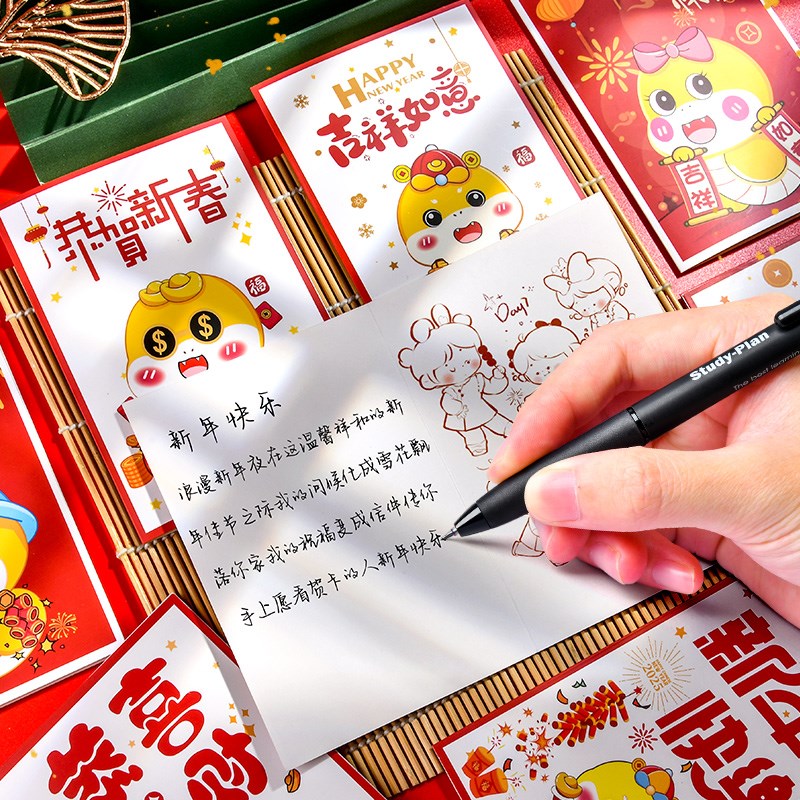 HAPPY
NEW YEAR
吉祥如意
福
恭贺新春
福
$ $
吉祥
如意
Day1
新年快乐
浪漫新年夜在这温馨祥和的新
年佳节之际我的问候化成雪花飘
落你家我的祝福变成信件传你
手上愿看贺卡的人新年快乐
Study-Plan
The best learning
恭喜
2025
新
快